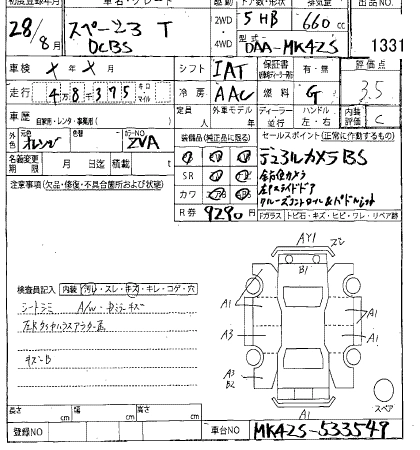 初度登録年月 車名・グレード 駆動 ドア数・形状 排気量 出品NO.
28/8月 スペーシア T DCBS 2WD 4WD 5 HB 660cc
型式 DAA-MK42S 1331
車検 X年X月 シフト IAT 有・無 評価点
走行 4万8千375 キロ マイル 冷房 AAC 燃料 G 3.5
車歴 自家用・レンタ・事業用( ) 定員 人 外車モデル 年 ディーラー 並行 ハンドル 左・右 内装評価 C
外色 元色 オレンジ 色替 カラーNO. ZVA 装備品(純正品に限る) セールスポイント(正常に作動するもの)
名義変更期限 月 日迄 積載 t デュアルカメラBS
注意事項(欠品・修復・不具合箇所および状態) SR 全方位カメラ
カワ 左Pスライドドア
クルーズコントロール&パドルシフト
R券 9290円 Fガラス トビ石・キズ・ヒビ・ワレ・リペア跡
AY1
B1
検査員記入 内装 汚れ・スレ・キズ・キレ・コゲ・穴
シートシミ A/w・ドアミラーキズ
キズ-B
A1
A1
A1
A3
A1
A3
B2
A1
スペア
長さ cm 幅 cm 高さ cm
登録NO 車台NO MK42S-533549